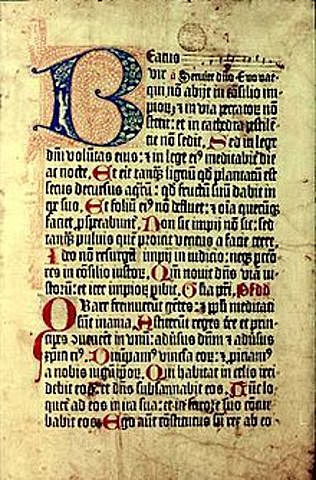 Beatus
vir Seruite dño Evovae
qui nō abijt in cōsilio im
pioꝝ ⁊ in via peccatoꝝ nō
stetit: et in cathedra pestilē
tie nō sedit, Sed in lege
dñi volūtas eius: ⁊ in lege eiꝰ meditabit̄ die
ac nocte, Et erit tanqꝫ lignū qd̄ plantatū est
secus decursus aqꝝ: qd̄ fructū suū dabit in
tp̄e suo, Et foliū eiꝰ nō defluet: ⁊ oīa quecūqꝫ
faciet ꝓsperabunt̄, Non sic impij nō sic: sed
tanqꝫ puluis quē proicit ventus a facie terre,
Ideo nō resurgūt impij in iudicio: neqꝫ pctō
res in cōsilio iustoꝝ, Qm̄ nouit dñs viā iu
storū: et iter impioꝝ ꝑibit, Glīa pr̄i,
Quare fremuerūt gētes: ⁊ pp̄li meditati
sūt inania, Astiterūt reges tr̄e et prin
cipes ꝯuenerūt in vnū: aduersꝰ dñm ⁊ aduersus
xp̄m eiꝰ, Dirūpamꝰ vincl̄a eoꝝ: ⁊ ꝓiciamꝰ
a nobis iugū ip̄oꝝ, Qui habitat in celis irri
debit eos: et dñs subsannabit eos, Tūc lo
quet̄ ad eos in ira sua: et in furore suo cōtur
babit eos, Ego aūt cōstitutus sū rex ab eo